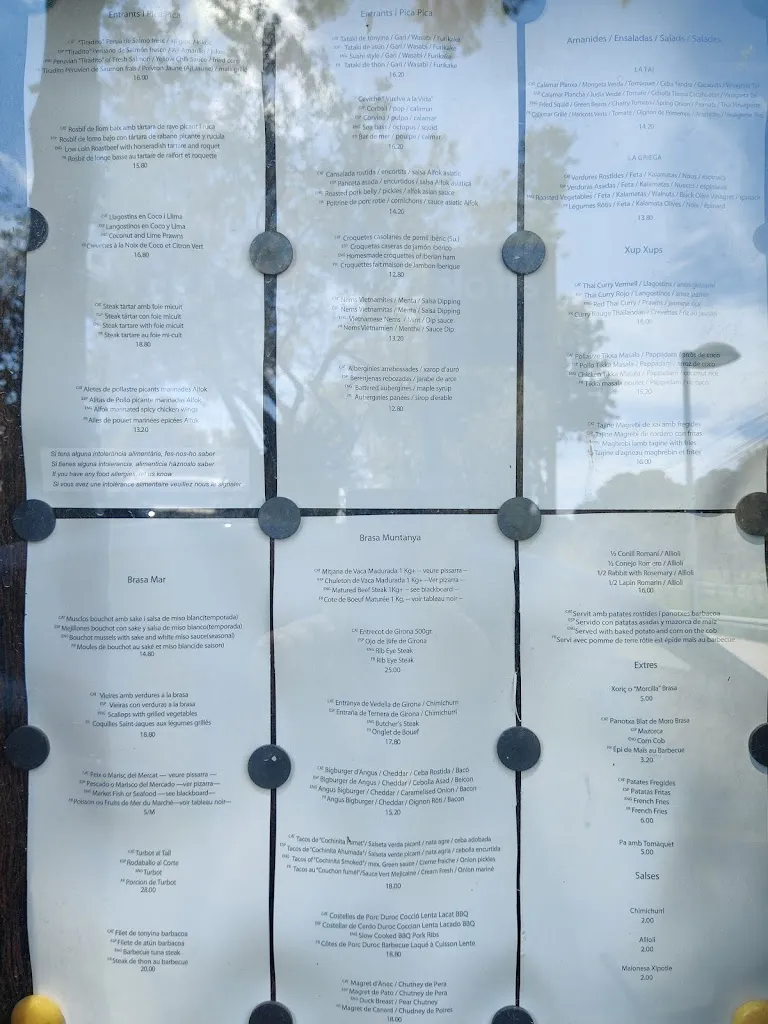 Entrants i Pica Pica
"Tiradito" Peruà de Salmó fresc
"Tiradito" Peruano de Salmón fresco / Ají Amarillo
Peruvian "Tiradito" of Fresh Salmon / Yellow Chili Sauce / Fried corn
Tiradito Péruvien de Saumon frais / Piment Jaune (Ají)
16.00
CAT Rosbif de llom baix amb tàrtara de rave picant i ruca
ESP Rosbif de lomo bajo con tártara de rábano picante y rucula
ENG Low Loin Roastbeef with horseradish tartare and roquet
FR Rosbif de longe basse au tartare de raifort et roquette
15.80
CAT Llagostins en Coco i Llima
ESP Langostinos en Coco y Lima
ENG Coconut and Lime Prawns
FR Crevettes à la Noix de Coco et Citron Vert
16,80
CAT Steak tàrtar amb foie micuit
ESP Steak tártar con foie micuit
ENG Steak tartare with foie micuit
FR Steak tartare au foie mi-cuit
18.80
CAT Aletes de pollastre picants marinades Alfok
ESP Alitas de Pollo picante maridadas Alfok
ENG Alfok marinated spicy chicken wings
FR Ailes de poulet marinées épicées
13.20
Si tens alguna intolerància alimentària, fes-nos-ho saber
Si tienes alguna intolerancia alimenticia háznoslo saber
If you have any food allergies, let us know
Si vous avez une intolérance alimentaire veuillez nous le signaler
Entrants i Pica Pica
CAT Tataki de tonyina / Gari / Wasabi / Furikake
ESP Tataki de atún / Gari / Wasabi / Furikake
ENG Sushi style / Gari / Wasabi / Furikake
FR Tataki de thon / Gari / Wasabi / Furikake
16.20
Ceviche "Vuelve a la Vida"
CAT Corbina / pop / calamar
ESP Corvina / pulpo / calamar
ENG Sea bass / octopus / squid
FR Bar de mer / poulpe / calmar
16.20
CAT Cansalada rostida / encurtits / salsa Alfok asiatic
ESP Panceta asada / encurtidos / salsa Alfok asiatica
ENG Roasted pork belly / pickles / alfok asian sauce
FR Poitrine de porc rôtie / cornichons / sauce asiatik Alfok
14.20
CAT Croquetes casolanes de pernil ibèric (5u.)
ESP Croquetas caseras de jamón ibérico
ENG Homesmade croquettes of iberian ham
FR Croquettes fait maison de Jambon Iberique
12.80
CAT Nems Vietnamites / Menta / Salsa Dipping
ESP Nems Vietnamitas / Menta / Salsa Dipping
ENG Vietnamese Nems / Mint / Dip sauce
FR Nems Vietnamien / Menthe / Sauce Dip
13.20
CAT Albergínies arrebossades / xarop d'auro
ESP Berenjenas rebozadas / jarabe de arce
ENG Battered aubergines / maple syrup
FR Aubergines panées / sirop d'érable
12.80
Amanides / Ensaladas / Salads / Salades
LA TAI
CAT Calamar Planxa / Mongeta Verda / Tomàquet / Ceba Tendra / Cacauets / Vinagreta Tai
ESP Calamar Plancha / Judía Verde / Tomate / Cebolla Tierna / Cacahuetes / Vinagreta Tai
ENG Fried Squid / Green Beans / Cherry Tomato / Spring Onion / Peanuts / Thai Vinaigrette
FR Calamar Grillé / Haricots Verts / Tomate / Oignon de Printemps / Arachides / Vinaigrette Thai
14.20
LA GRIEGA
CAT Verdures Rostides / Feta / Kalamatas / Nous / espinacs
ESP Verduras Asadas / Feta / Kalamata / Nueces / espinacas
ENG Roasted Vegetables / Feta / Kalamatas / Walnuts / Black Olive Vinaigrette / spinach
FR Légumes Rôtis / Feta / Kalamata Olives / Noix / épinard
13.80
Xup Xups
CAT Thai Curry Vermell / Llagostins / arròs gessamí
ESP Thai Curry Rojo / Langostinos / arroz jazmín
ENG Red Thai Curry / Prawns / jasmine rice
FR Curry Rouge Thaïlandais / Crevettes / riz au jasmin
16.00
CAT Pollastre Tikka Masala / Pappadam / arròs de coco
ESP Pollo Tikka Masala / Pappadam / arroz de coco
ENG Chicken Tikka Masala / Pappadam / coconut rice
FR Tikka masala poulet / Pappadam / riz coco
15.20
CAT Tajine Magrebí de xai amb fregides
ESP Tajine Magrebí de cordero con fritas
ENG Maghrebi lamb tagine with fries
FR Tajine d'agneau maghrébin et frites
16.00
Brasa Mar
CAT Musclos bouchot amb sake i salsa de miso blanc(temporada)
ESP Mejillones bouchot con sake y salsa de miso blanco(temporada)
ENG Bouchot mussels with sake and white miso sauce(seasonal)
FR Moules de bouchot au saké et miso blanc(de saison)
14.80
CAT Vieires amb verdures a la brasa
ESP Vieiras con verduras a la brasa
ENG Scallops with grilled vegetables
FR Coquilles Saint-Jaques aux légumes grillés
18.80
CAT Peix o Marisc del Mercat — veure pissarra —
ESP Pescado o Marisco del Mercado —ver pizarra—
ENG Market Fish or Seafood —see blackboard—
FR Poisson ou Fruits de Mer du Marché—voir tableau noir—
S/M
CAT Turbot al Tall
ESP Rodaballo al Corte
ENG Turbot
FR Porcion de Turbot
28.00
CAT Filet de tonyina barbacoa
ESP Filete de atún barbacoa
ENG Barbecue tuna steak
FR Steak de thon au barbecue
20.00
Brasa Muntanya
CAT Mitjana de Vaca Madurada 1 Kg+ – veure pissarra –
ESP Chuleton de Vaca Madurada 1 Kg+ –Ver pizarra–
ENG Matured Beef Steak 1Kg+ – see blackboard–
FR Cote de Boeuf Maturée 1 Kg. – voir tableau noir –
CAT Entrecot de Girona 500gr.
ESP Ojo de Bife de Girona
ENG Rib Eye Steak
FR Rib Eye Steak
25.00
CAT Entranya de Vedella de Girona / Chimichurri
ESP Entraña de Ternera de Girona / Chimichurri
ENG Butcher's Steak
FR Onglet de Bouef
17.80
CAT Bigburger d'Angus / Cheddar / Ceba Rostida / Bacó
ESP Bigburger de Angus / Cheddar / Cebolla Asad / Beicon
ENG Angus Bigburger / Cheddar / Caramelised Onion / Bacon
FR Angus Bigburger / Cheddar / Oignon Rôti / Bacon
15.20
CAT Tacos de "Cochinita Fumat"/ Salseta verde picant / nata agre / ceba adobada
ESP Tacos de "Cochinita Ahumada"/ Salseta verde picant / nata agria / cebolla encurtida
ENG Tacos of "Cochinita Smoked"/ mex. Green sauce / Creme fraiche / Onion pickles
FR Tacos au "Couchon fumé"/Sauce Vert Mejicaine / Cream Fresh / Onion mariné
18.00
CAT Costelles de Porc Duroc Cocció Lenta Lacat BBQ
ESP Costellar de Cerdo Duroc Coccion Lenta Lacado BBQ
ENG Slow Cooked BBQ Pork Ribs
FR Côtes de Porc Duroc Barbecue Laqué à Cuisson Lente
18,80
CAT Magret d'Ànec / Chutney de Pera
ESP Magret de Pato / Chutney de Pera
ENG Duck Breast / Pear Chutney
FR Magret de Canard / Chudney de Poires
18.00
½ Conill Romaní / Allioli
½ Conejo Romero / Allioli
1/2 Rabbit with Rosemary / Allioli
1/2 Lapin Romarin / Allioli
16.00
CAT Servit amb patates rostides i panotxes barbacoa
ESP Servido con patatas asadas y mazorca de maiz
ENG Served with baked potato and corn on the cob
FR Servi avec pomme de terre rôtie est épide mais au barbecue
Extres
Xoriç o "Morcilla" Brasa
5.00
CAT Panotxa Blat de Moro Brasa
ESP Mazorca
ENG Corn Cob
FR Épi de Maïs au Barbecue
3.20
CAT Patates Fregides
ESP Patatas Fritas
ENG French Fries
FR French Fries
6.00
Pa amb Tomàquet
5.00
Salses
Chimichurri
2.00
Allioli
2.00
Maionesa Xipotle
2.00